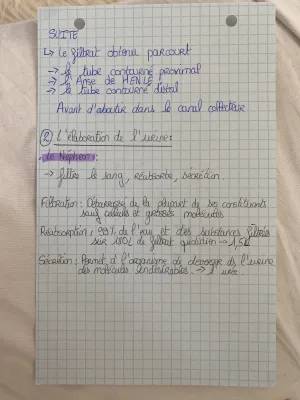 SUITE
↳ Le filtrat obtenu parcourt
→ le tube contourné proximal
→ l'Anse de HENLE
→ le tube contourné distal
Avant d'aboutir dans le canal collecteur
② L'élaboration de l'urine :
Le Néphron :
→ filtre le sang, réabsorbe, sécrétion.
Filtration : Débarrasse de la plupart de ses constituants
sauf cellules et grosses molécules
Réabsorption : 99% de l'eau et des substances filtrées
sur 180L de filtrat quotidien → 1,5L
Sécrétion : Permet à l'organisme de
des molécules indésirables. → l'urée